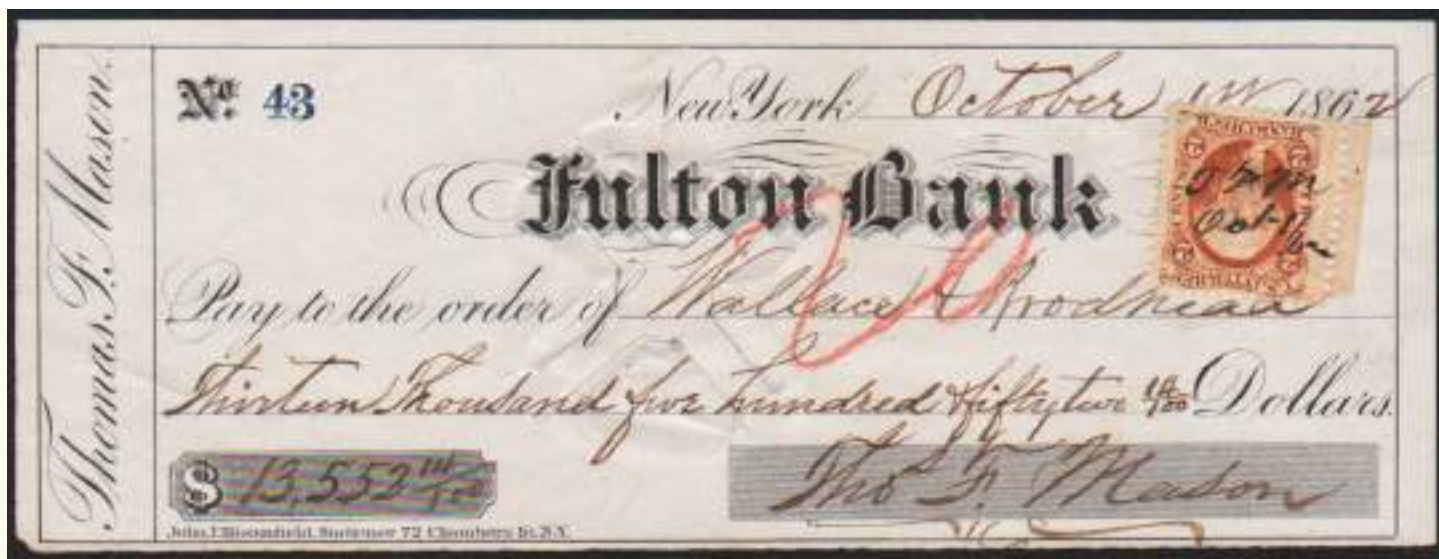 Thomas F. Mason.
No. 43
New York October 1st 1862
Fulton Bank
Pay to the order of Wallace & Brodhead
Thirteen Thousand five hundred & fifty two Dollars.
$ 13,552
Tho F. Mason
John J. Bloomfield, Stationer 72 Chambers St. N.Y.